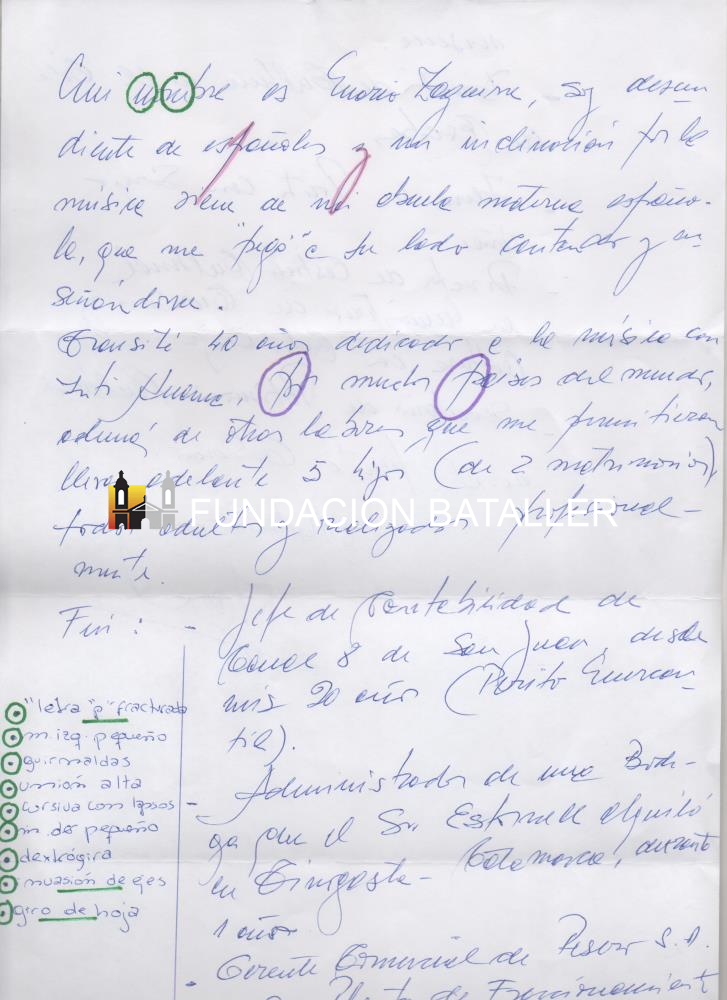 mi nombre es Mario Zaguirre, soy descen
diente de españoles y mi inclinación por la
música viene de mi abuela materna españo-
la, que me "pegó" a su lado cantando y en
señándome.
Transité 40 años dedicado a la música con
Inti Huama, por muchos países del mundo,
además de otras labores, que me permitieron
llevar adelante 5 hijos (de 2 matrimonios),
FUNDACION BATALLER
todos adultos y realizados profesional-
mente.
Fui: - Jefe de Contabilidad de
Canal 8 de San Juan, desde
mis 20 años (Perito Mercan-
til).
- Administrador de una Bode-
ga que el Sr. alquiló
en Tinogasta - Catamarca, durante
1 año.
- Gerente Comercial de S.A.
Planta de
"letra "p" fracturada
m.izq. pequeño
guirnaldas
unión alta
cursiva con lapsos
m. der pequeño
dextrógira
invasión de ejes
giro de hoja